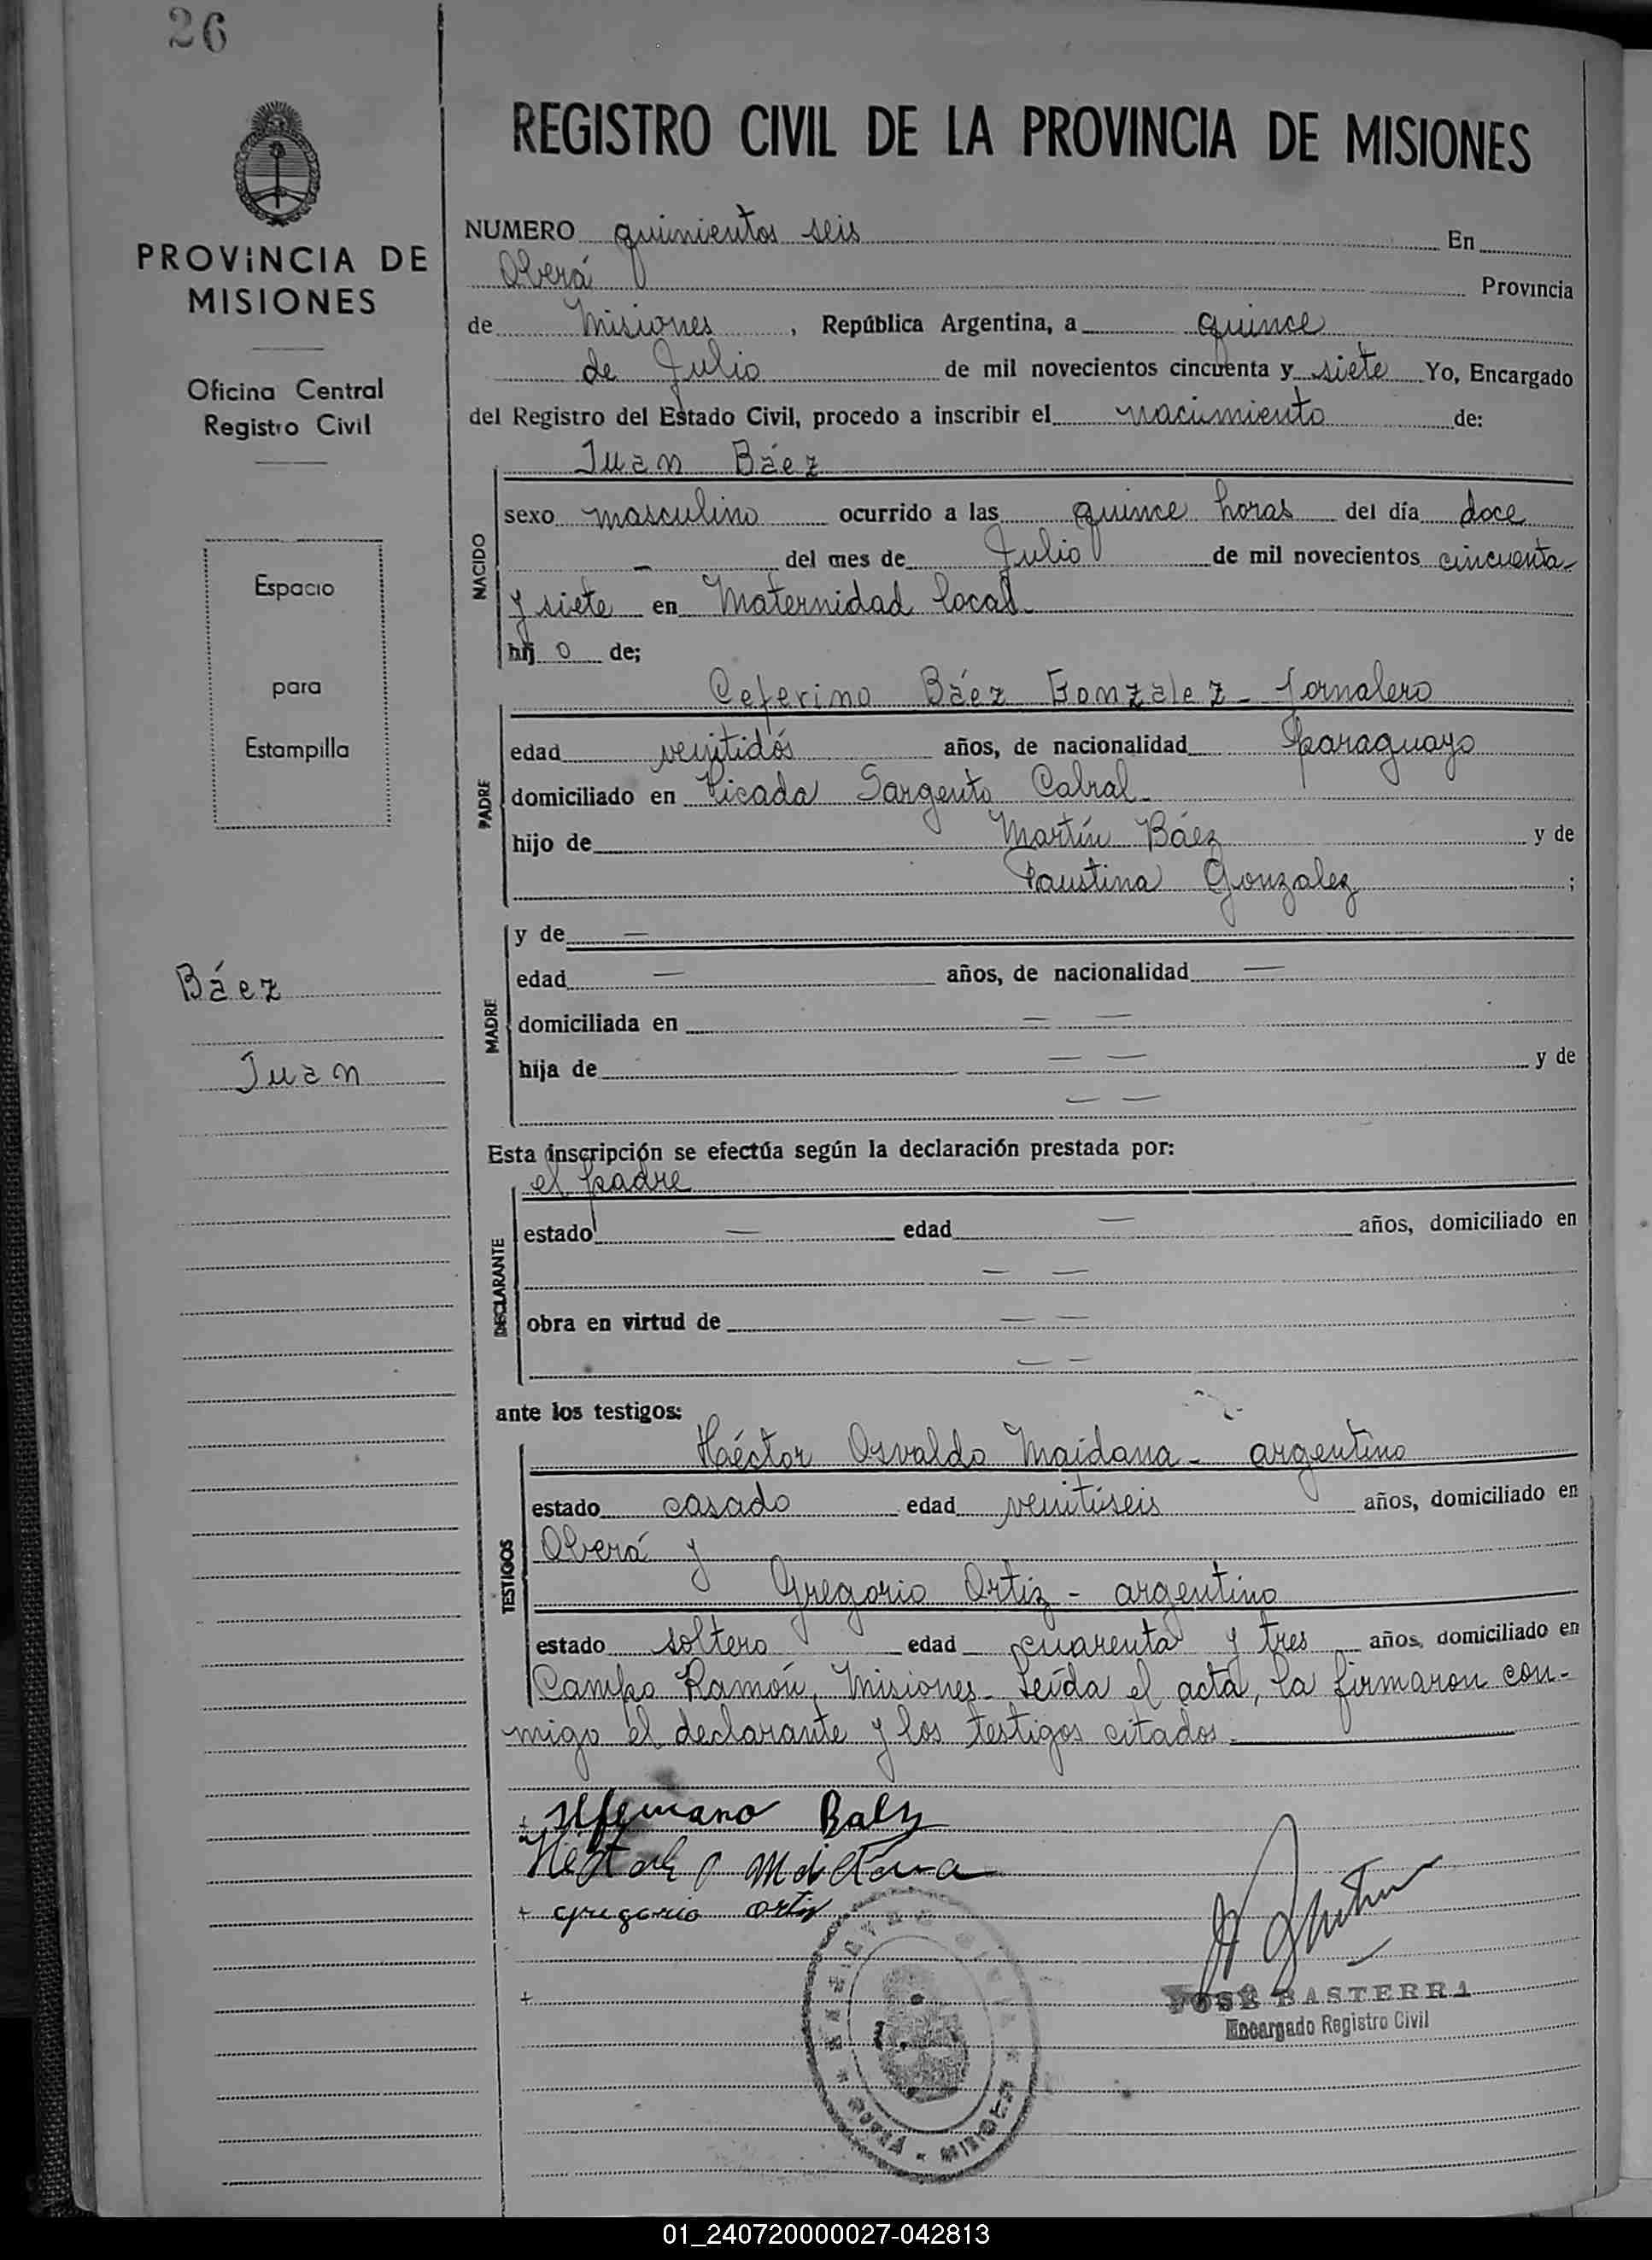 26
PROVINCIA DE
MISIONES
Oficina Central
Registro Civil
Espacio
para
Estampilla
Báez
Juan
REGISTRO CIVIL DE LA PROVINCIA DE MISIONES
NUMERO quinientos seis En
Oberá Provincia
de Misiones, República Argentina, a quince
de Julio de mil novecientos cincuenta y siete Yo, Encargado
del Registro del Estado Civil, procedo a inscribir el nacimiento de:
Juan Báez
NACIDO
sexo masculino ocurrido a las quince horas del día doce
— del mes de Julio de mil novecientos cincuenta
y siete en Maternidad local-
hij o de;
Ceferino Báez Gonzalez - Jornalero
PADRE
edad veintidós años, de nacionalidad paraguayo
domiciliado en Picada Sargento Cabral-
hijo de Martín Báez y de
Faustina Gonzalez ;
MADRE
y de —
edad — años, de nacionalidad —
domiciliada en — —
hija de — — y de
— —
Esta inscripción se efectúa según la declaración prestada por:
el padre
DECLARANTE
estado — edad — años, domiciliado en
— —
obra en virtud de — —
— —
ante los testigos:
Héctor Osvaldo Maidana - argentino
TESTIGOS
estado casado edad veintiseis años, domiciliado en
Oberá y
Gregorio Ortiz - argentino
estado soltero edad cuarenta y tres años, domiciliado en
Campo Ramón, Misiones- Leída el acta, la firmaron con-
migo el declarante y los testigos citados.
Baez
+ gregorio ortiz
+
JOSÉ BASTERRA
Encargado Registro Civil
OBERÁ - MISIONES
01_240720000027-042813